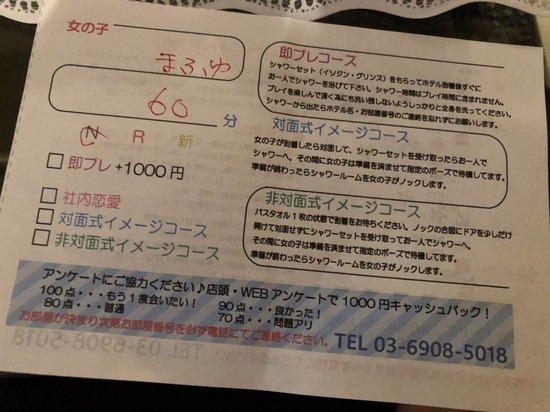 女の子
まふゆ
60 分
N R 新
即プレ +1000円
社内恋愛
対面式イメージコース
非対面式イメージコース
即プレコース
シャワーセット（イソジン・グリンス）をもらってホテル到着後すぐに
お一人でシャワーを浴びて下さい。シャワー時間はプレイ時間に含まれません。
プレイを楽しんで頂く為にも洗い残しないようしっかりと全身を洗ってください。
シャワーから出たらホテル名・お部屋番号のご連絡を忘れずにお願いします。
対面式イメージコース
女の子が到着したら対面して、シャワーセットを受け取ったらお一人で
シャワーへ。その間に女の子は準備を済ませて指定のポーズで待機してます。
準備が終わったらシャワールームを女の子がノックします。
非対面式イメージコース
バスタオル1枚の状態で到着をお待ちください。ノックの合図にドアを少しだけ
開けて対面せずにシャワーセットを受け取ってお一人でシャワーへ。
その間に女の子は準備を済ませて指定のポーズで待機してます。
準備が終わったらシャワールームを女の子がノックします。
アンケートにご協力ください♪店頭・WEBアンケートで1000円キャッシュバック！
100点・・・もう1度会いたい！ 90点・・・良かった！
80点・・・普通 70点・・・問題アリ
お部屋が決まり次第お部屋番号を必ず電話にてご連絡ください。 TEL 03-6908-5018